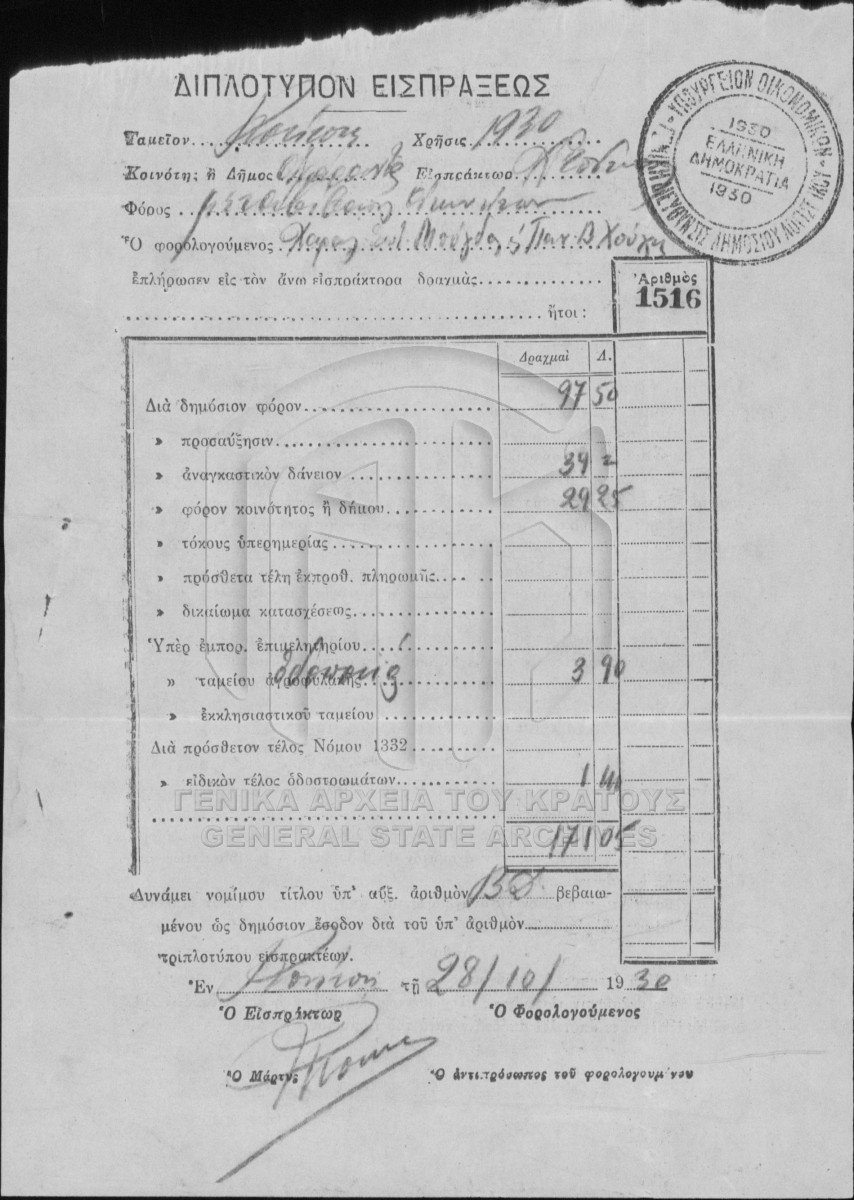 ΔΙΠΛΟΤΥΠΟΝ ΕΙΣΠΡΑΞΕΩΣ
ΥΠΟΥΡΓΕΙΟΝ ΟΙΚΟΝΟΜΙΚΩΝ
1930
ΕΛΛΗΝΙΚΗ
ΔΗΜΟΚΡΑΤΙΑ
1930
Ταμεῖον Χρῆσις 1930
Κοινότης ἢ Δῆμος Εἰσπράκτωρ
Φόρος
Ὁ φορολογούμενος
ἐπλήρωσεν εἰς τὸν ἄνω εἰσπράκτορα δραχμὰς
ἤτοι :
Ἀριθμὸς
1516
Δραχμαὶ Λ.
Διὰ δημόσιον φόρον 97 50
» προσαύξησιν
» ἀναγκαστικὸν δάνειον 39
» φόρον κοινότητος ἢ δήμου 29 25
» τόκους ὑπερημερίας
» πρόσθετα τέλη ἐκπροθ. πληρωμῆς
» δικαίωμα κατασχέσεως
Ὑπὲρ ἐμπορ. ἐπιμελητηρίου
» ταμείου ἀγροφυλακῆς 3 90
» ἐκκλησιαστικοῦ ταμείου
Διὰ πρόσθετον τέλος Νόμου 1332
» εἰδικὸν τέλος ὁδοστρωμάτων 1 40
ΓΕΝΙΚΑ ΑΡΧΕΙΑ ΤΟΥ ΚΡΑΤΟΥΣ
GENERAL STATE ARCHIVES
171 05
Δυνάμει νομίμου τίτλου ὑπ' αὔξ. ἀριθμὸν βεβαιω-
μένου ὡς δημόσιον ἔσοδον διὰ τοῦ ὑπ' ἀριθμὸν
τριπλοτύπου εἰσπρακτέων.
Ἐν τῇ 28/10/ 1930
Ὁ Εἰσπράκτωρ Ὁ Φορολογούμενος
Ὁ Μάρτυς Ὁ ἀντιπρόσωπος τοῦ φορολογουμένου